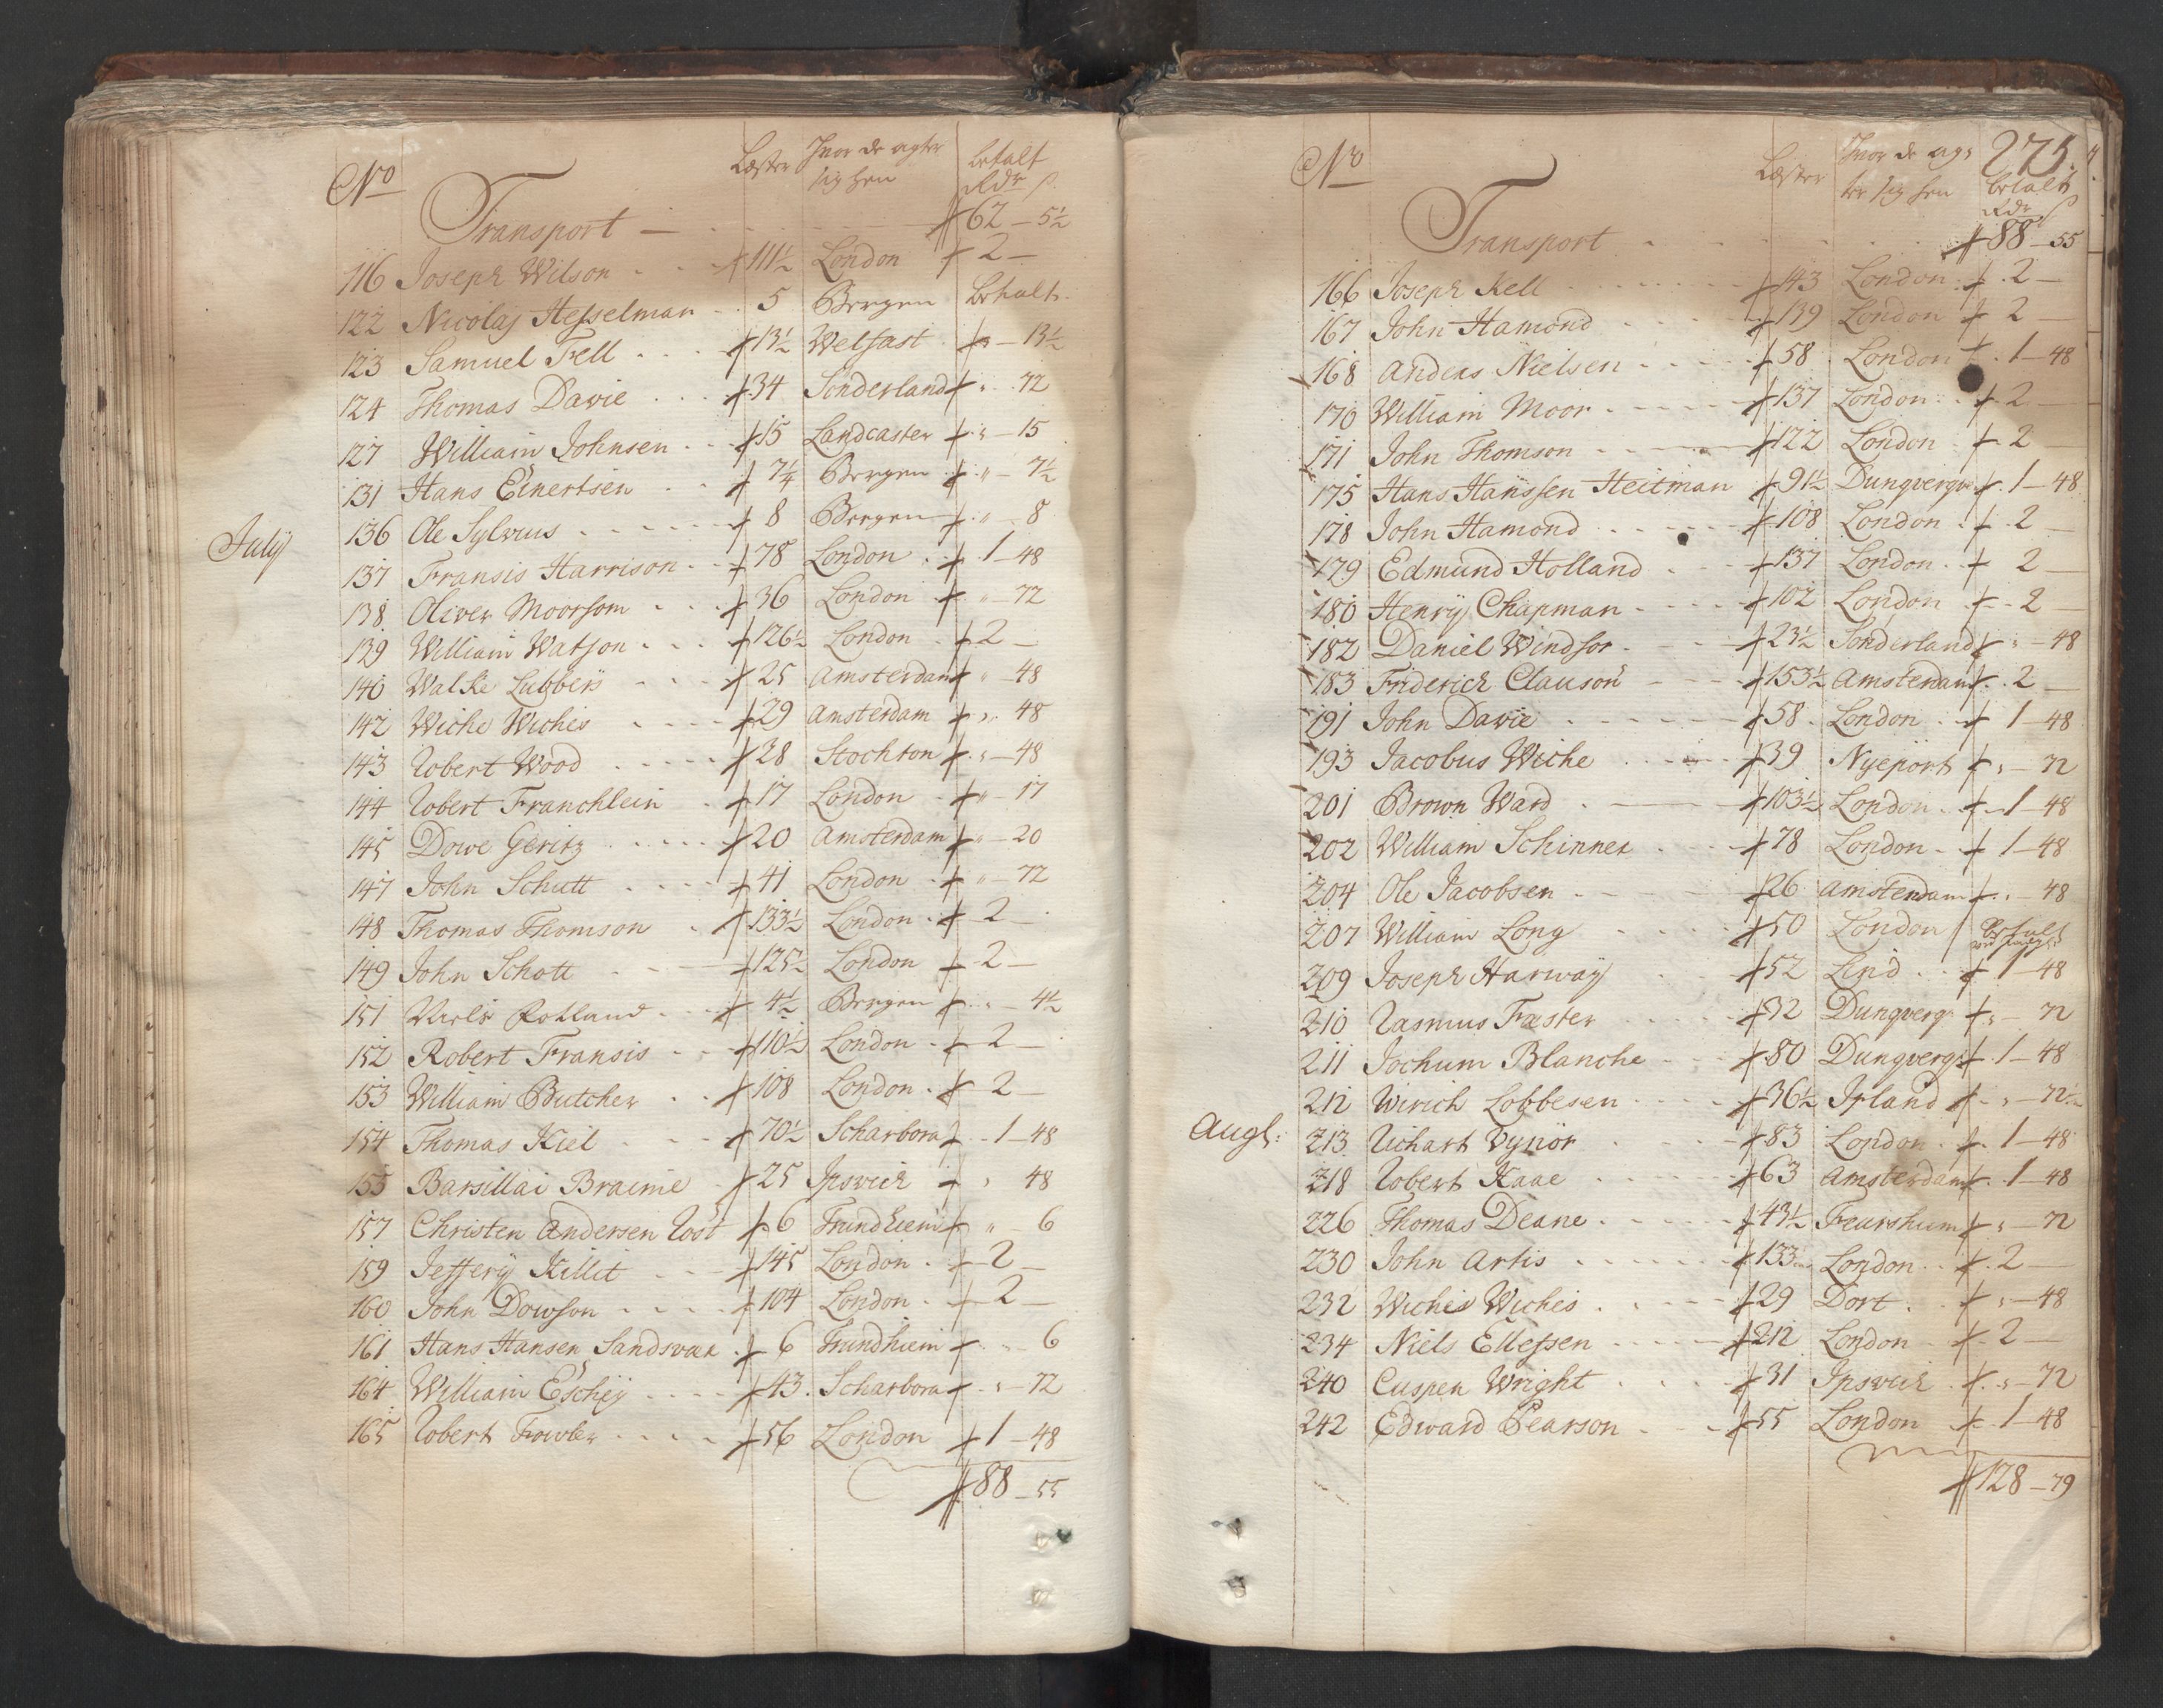 No Læster Hvor de agter sig hen betalt Rdr ß
Transport — 62 — 5½
116 Joseph Wilson 111½ London 2 —
122 Nicolaj Hesselman 5 Bergen betalt
123 Samuel Fell 13½ Welfast " — 13½
124 Thomas Davie 34 Sonderland " 72
127 William Johnsen 15 Landcaster " — 15
131 Hans Einertsen 7¼ Bergen " — 7½
July 136 Ole Sylvius 8 Bergen " — 8
137 Fransis Harrison 78 London 1 — 48
138 Oliver Moorsom 36 London " — 72
139 William Watson 126½ London 2 —
140 Walke Lubbers 25 Amsterdam " — 48
142 Wiche Wiches 29 Amsterdam " 48
143 Robert Wood 28 Stockton " — 48
144 Robert Franchlein 17 London " — 17
145 Dowe Geritz 20 Amsterdam " — 20
147 John Schutt 41 London " — 72
148 Thomas Thomson 133½ London 2 —
149 John Schott 125½ London 2 —
151 Niels Rolland 4½ Bergen " — 4½
152 Robert Fransis 110½ London 2 —
153 William Butcher 108 London 2 —
154 Thomas Kiel 70½ Scharbora 1 — 48
155 Barsillai Braime 25 Ipsvich " 48
157 Christen Andersen Rost 6 Trundhiem " — 6
159 Jeffery Killit 145 London 2 —
160 John Dowson 104 London 2 —
161 Hans Hansen Sandsvær 6 Trundhiem " 6
164 William Eschey 43 Scharbora " — 72
165 Robert Fowler 56 London 1 — 48
88 — 55
275.
No Læster Hvor de agter sig hen betalt Rdr ß
Transport 88 — 55
166 Joseph Kell 143 London 2 —
167 John Hamond 139 London 2 —
168 Anders Nielsen 58 London 1 — 48
170 William Moor 137 London 2 —
171 John Thomson 122 London 2 —
175 Hans Hanssen Heitman 91½ Dunqverqve 1 — 48
178 John Hamond 108 London 2 —
179 Edmund Holland 137 London 2 —
180 Henry Chapman 102 London 2 —
182 Daniel Windsor 23½ Sonderland " — 48
183 Friderich Clauson 153½ Amsterdam 2 —
191 John Davie 58 London 1 — 48
193 Jacobus Wiche 39 Nyeport " — 72
201 Brown Ward 103½ London 1 — 48
202 William Schinner 78 London 1 — 48
204 Ole Jacobsen 26 Amsterdam " 48
207 William Long 50 London betalt
209 Joseph Harway 52 Lind 1 — 48
210 Rasmus Fæster 32 Dunqverq " — 72
211 Jochum Blanche 80 Dunqverq 1 — 48
212 Wirich Lobbesen 36½ Irland " — 72
Augl: 213 Richart Vynor 83 London 1 — 48
218 Robert Kaae 63 Amsterdam 1 — 48
226 Thomas Deane 43½ Fearshum " — 72
230 John Artis 133 London 2 —
232 Wiches Wiches 29 Dort " — 48
234 Niels Ellefsen 212 London 2 —
240 Cuspen Wright 31 Ipsvich " 72
242 Edward Pearson 55 London 1 — 48
128 — 79